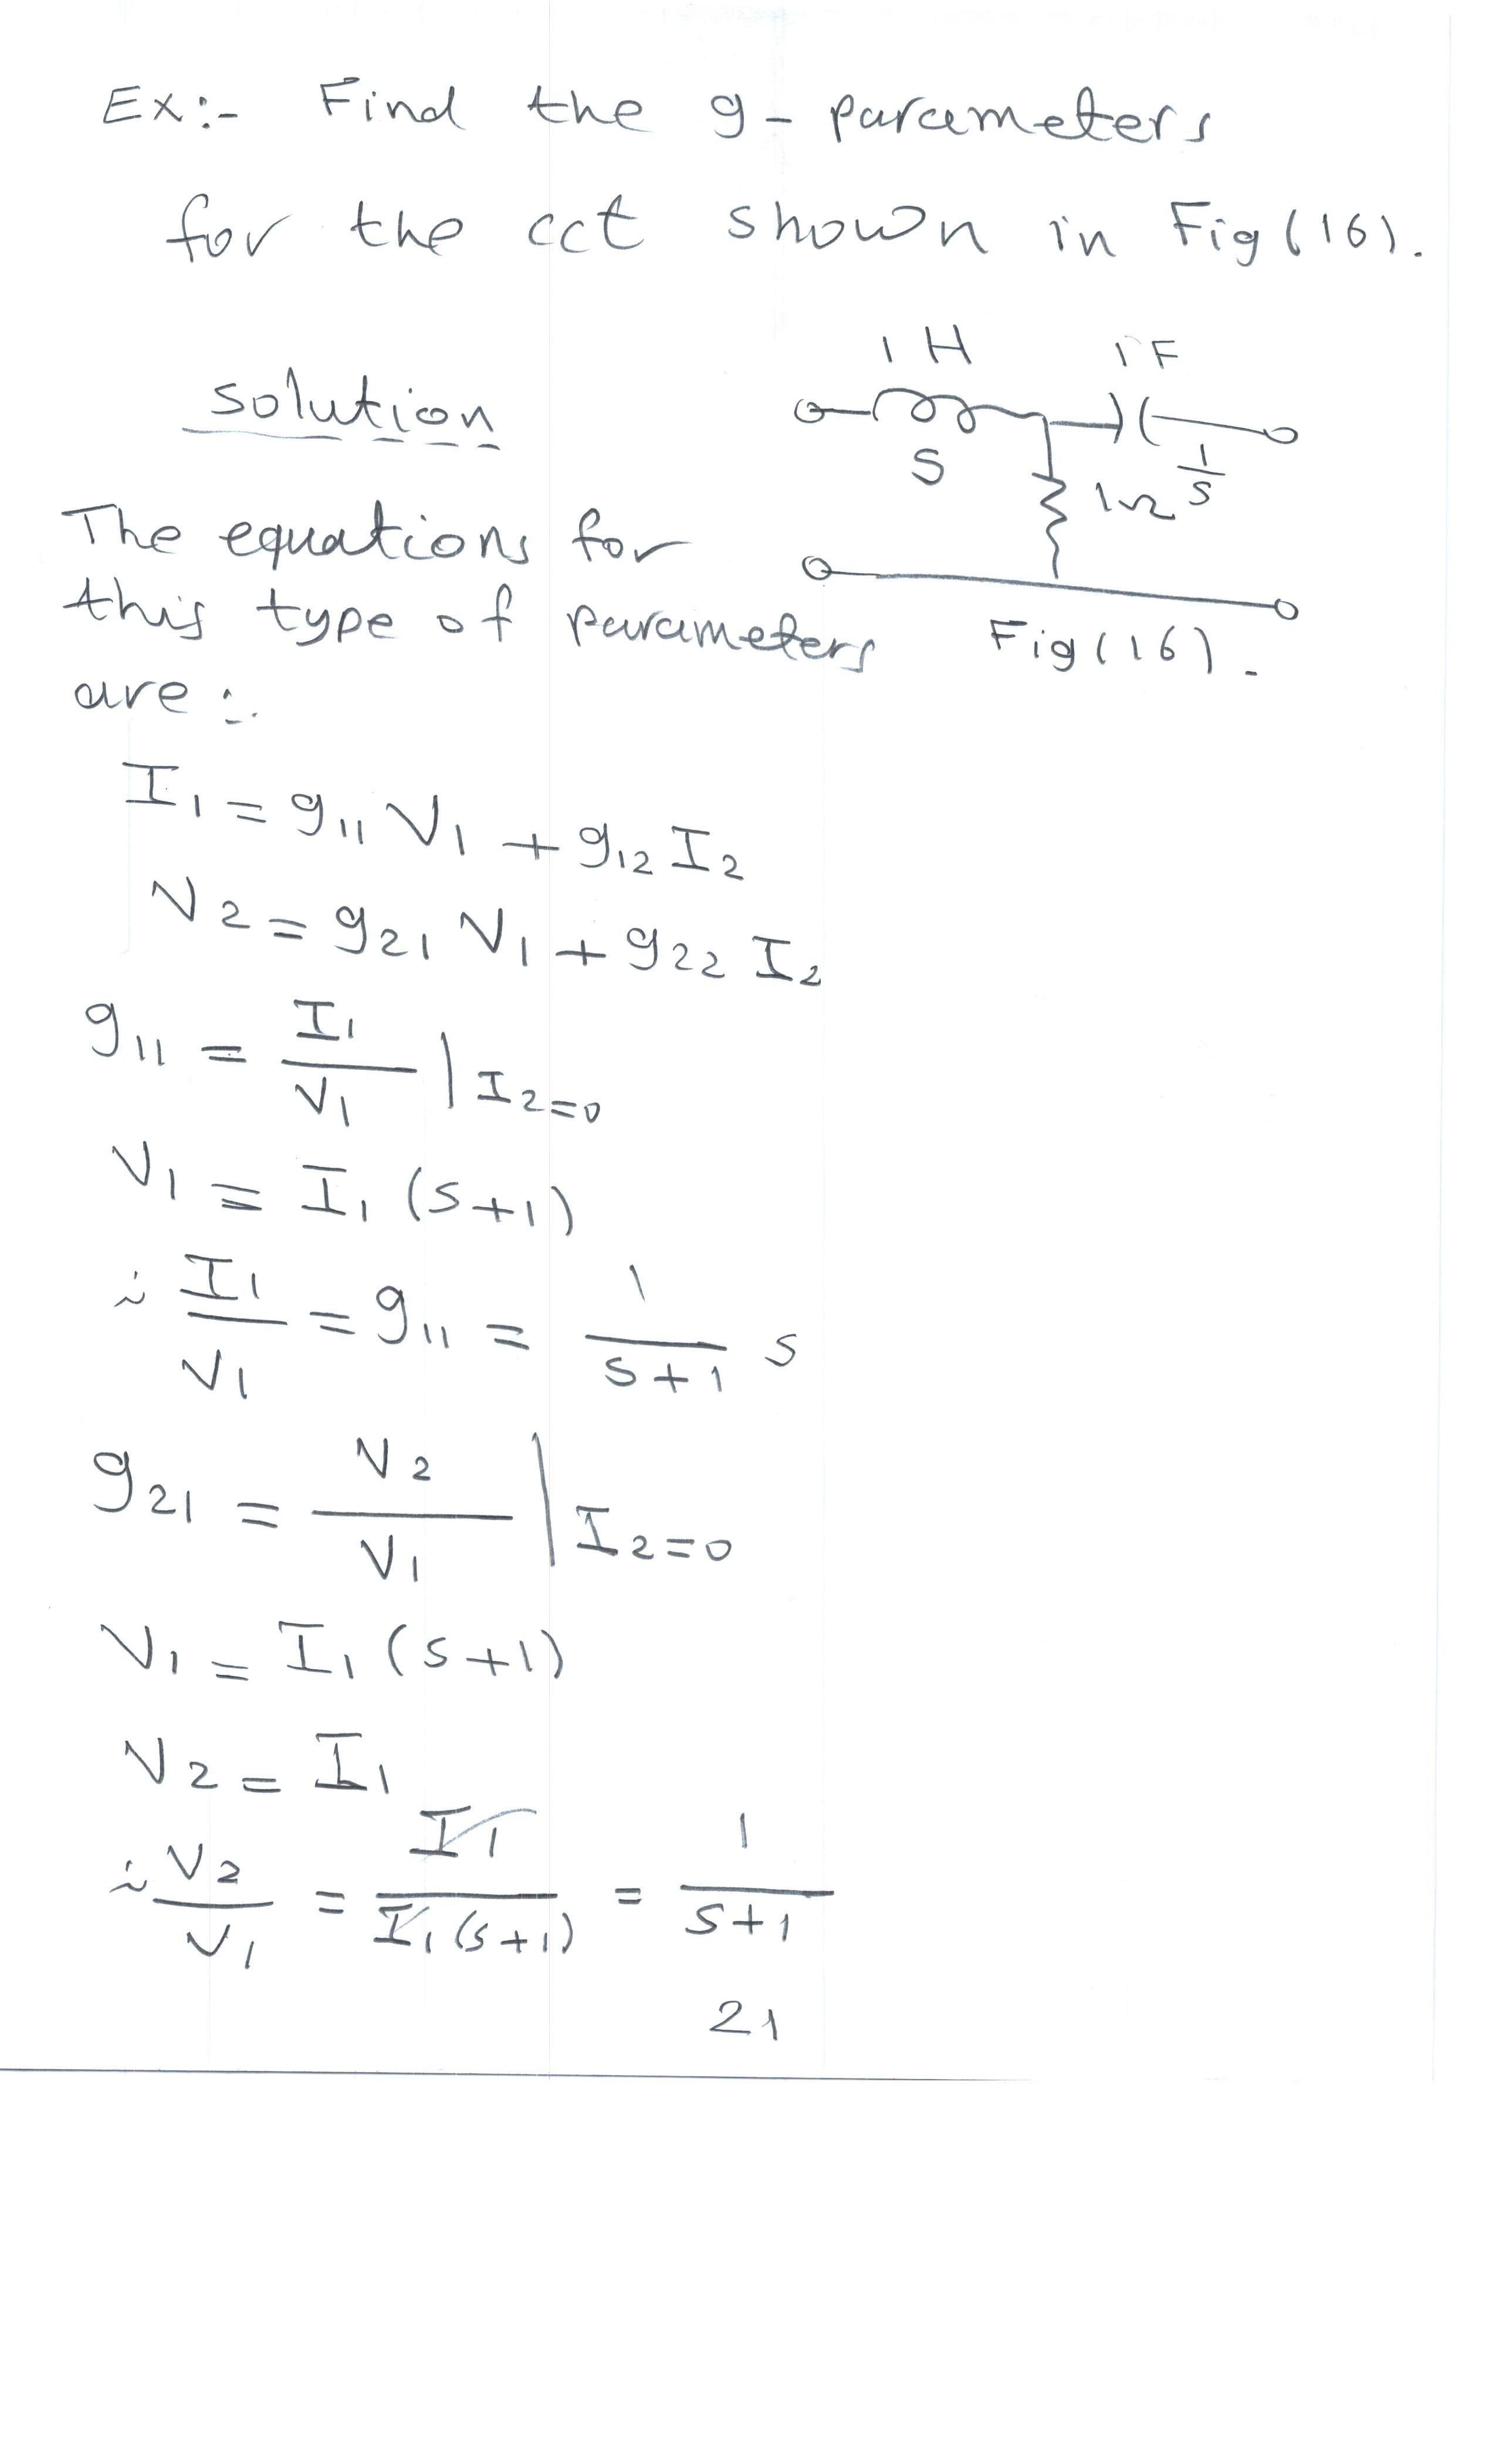 Ex:- Find the g-parameters
for the cct shown in Fig(16).
1H 1F
solution
S 1/S
1Ω
The equations for
this type of parameters
Fig(16).
are:-
I1 = g11 V1 + g12 I2
V2 = g21 V1 + g22 I2
g11 = I1/V1 | I2=0
V1 = I1 (S+1)
∴ I1/V1 = g11 = 1/(S+1) S
g21 = V2/V1 | I2=0
V1 = I1 (S+1)
V2 = I1
∴ V2/V1 = I1/(I1(S+1)) = 1/(S+1)
21